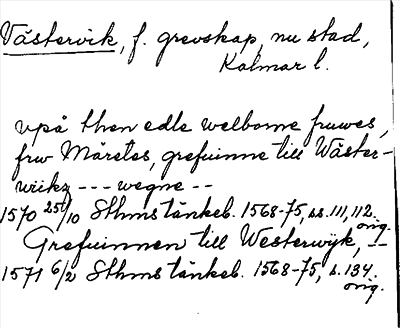 Västervik, f. grevskap, nu stad,
Kalmar l.
vpå then edle welborne fruwes,
frw Märetes, grefuinne till Wäster-
wiikz --- wegne --
1570 25/10 Sthms tänkeb. 1568-75, ss. 111, 112.
orig.
Grefuinnen till Westerwijk, --
1571 6/2 Sthms tänkeb. 1568-75, s. 134.
orig.